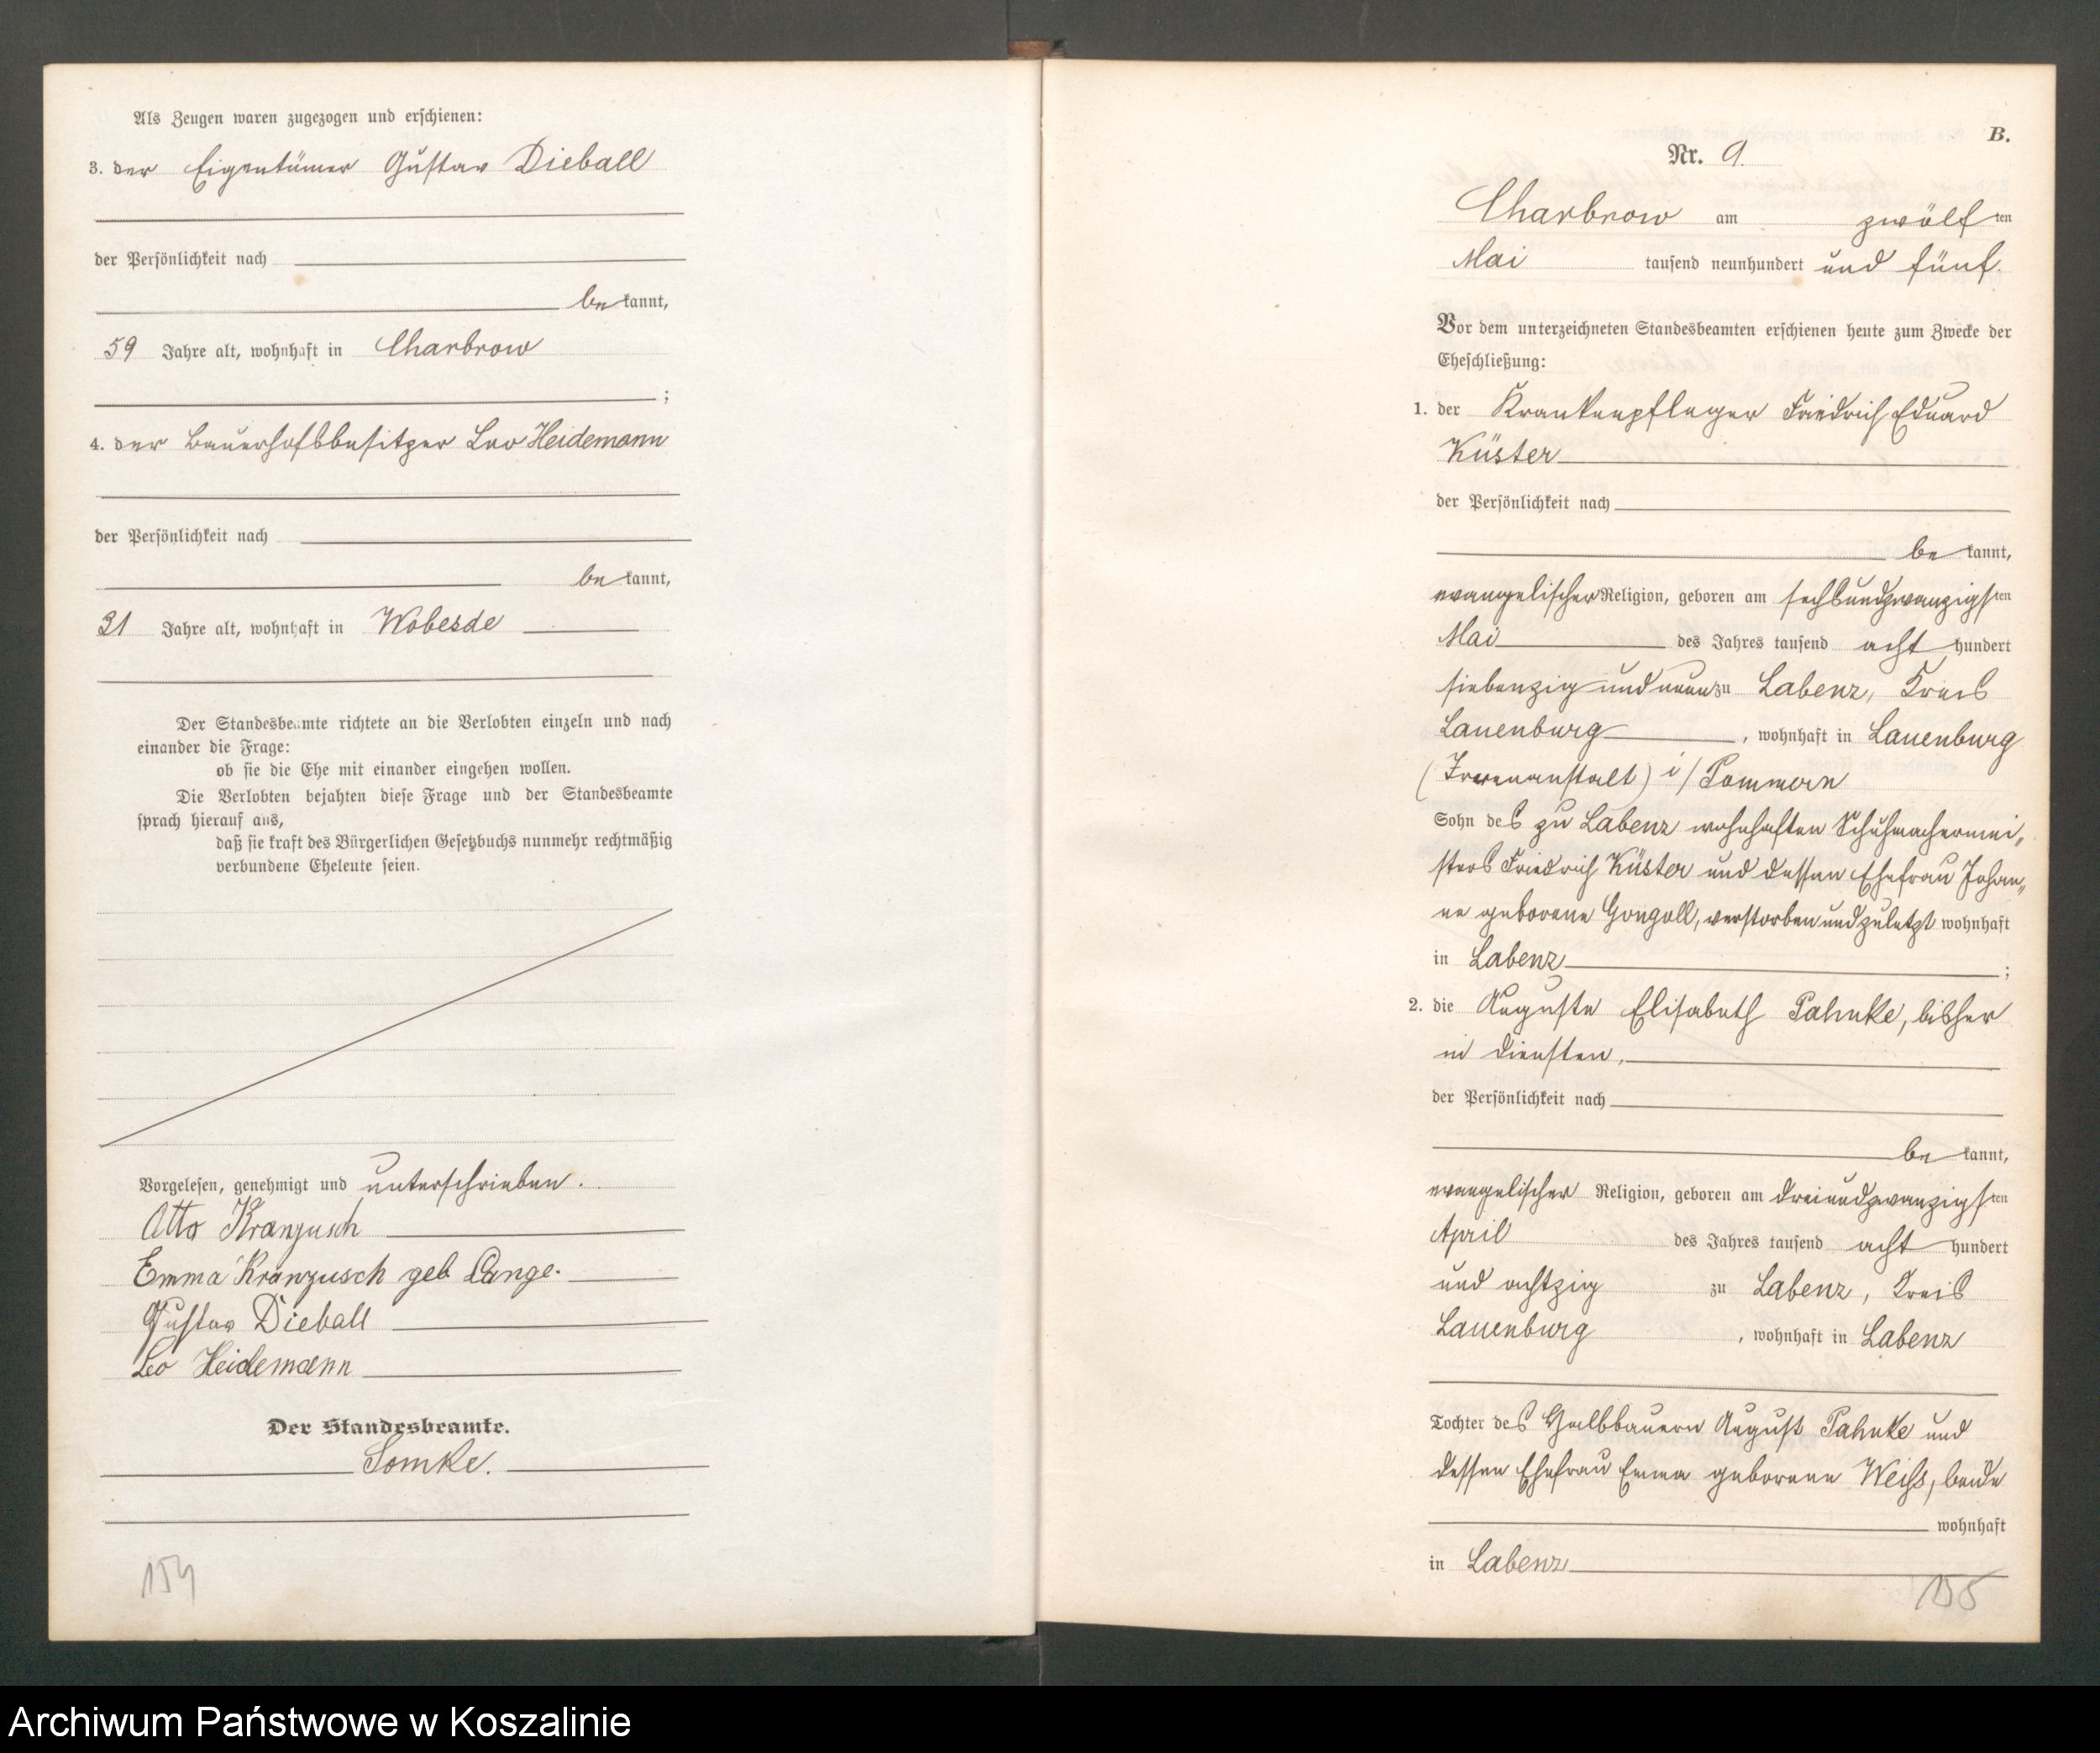 Als Zeugen waren zugezogen und erschienen:
3. der Eigentümer Gustav Dieball
der Persönlichkeit nach
be kannt,
59 Jahre alt, wohnhaft in Charbrow
;
4. der Bauerhofsbesitzer Leo Heidemann
der Persönlichkeit nach
be kannt,
31 Jahre alt, wohnhaft in Wobesde
Der Standesbeamte richtete an die Verlobten einzeln und nach
einander die Frage:
ob sie die Ehe mit einander eingehen wollen.
Die Verlobten bejahten diese Frage und der Standesbeamte
sprach hierauf aus,
daß sie kraft des Bürgerlichen Gesetzbuchs nunmehr rechtmäßig
verbundene Eheleute seien.
Vorgelesen, genehmigt und unterschrieben.
Otto Kranzusch
Emma Kranzusch geb. Lange.
Gustav Dieball
Leo Heidemann
Der Standesbeamte.
154
B.
Nr. 9.
Charbrow am zwölf ten
Mai tausend neunhundert und fünf.
Vor dem unterzeichneten Standesbeamten erschienen heute zum Zwecke der
Eheschließung:
1. der Krankenpfleger Friedrich Eduard
Küster
der Persönlichkeit nach
be kannt,
evangelischer Religion, geboren am sechsundzwanzigsten
Mai des Jahres tausend acht hundert
siebenzig und neun zu Labenz, Kreis
Lauenburg, wohnhaft in Lauenburg
(Irrenanstalt) i/Pommern
Sohn des zu Labenz wohnhaften Schuhmachermei„
sters Friedrich Küster und dessen Ehefrau Johan„
ne geborene Gongoll, verstorben und zuletzt wohnhaft
in Labenz;
2. die Auguste Elisabeth Pahnke, bisher
in Diensten,
der Persönlichkeit nach
be kannt,
evangelischer Religion, geboren am dreiundzwanzigsten
April des Jahres tausend acht hundert
und achtzig zu Labenz, Kreis
Lauenburg, wohnhaft in Labenz
Tochter des Halbbauern August Pahnke und
dessen Ehefrau Emma geborene Weiß, beide
wohnhaft
in Labenz
155
Archiwum Państwowe w Koszalinie